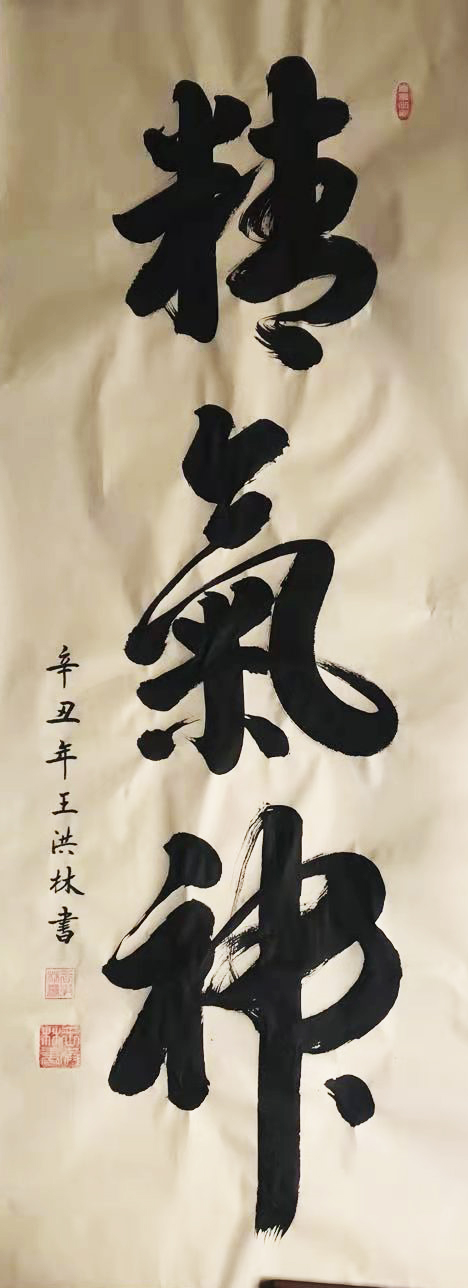 精氣神
辛丑年王洪林書